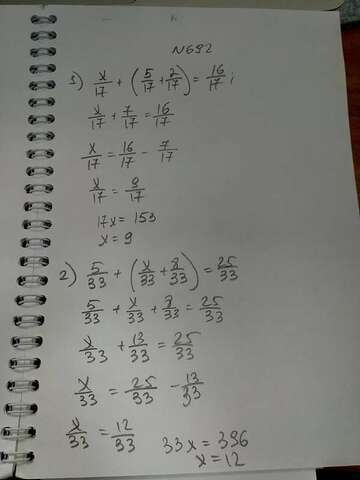 N692
1) x/17 + (5/17 + 2/17) = 16/17;
x/17 + 7/17 = 16/17
x/17 = 16/17 - 7/17
x/17 = 9/17
17x = 153
x = 9
2) 5/33 + (x/33 + 8/33) = 25/33
5/33 + x/33 + 8/33 = 25/33
x/33 + 13/33 = 25/33
x/33 = 25/33 - 13/33
x/33 = 12/33
33x = 396
x = 12